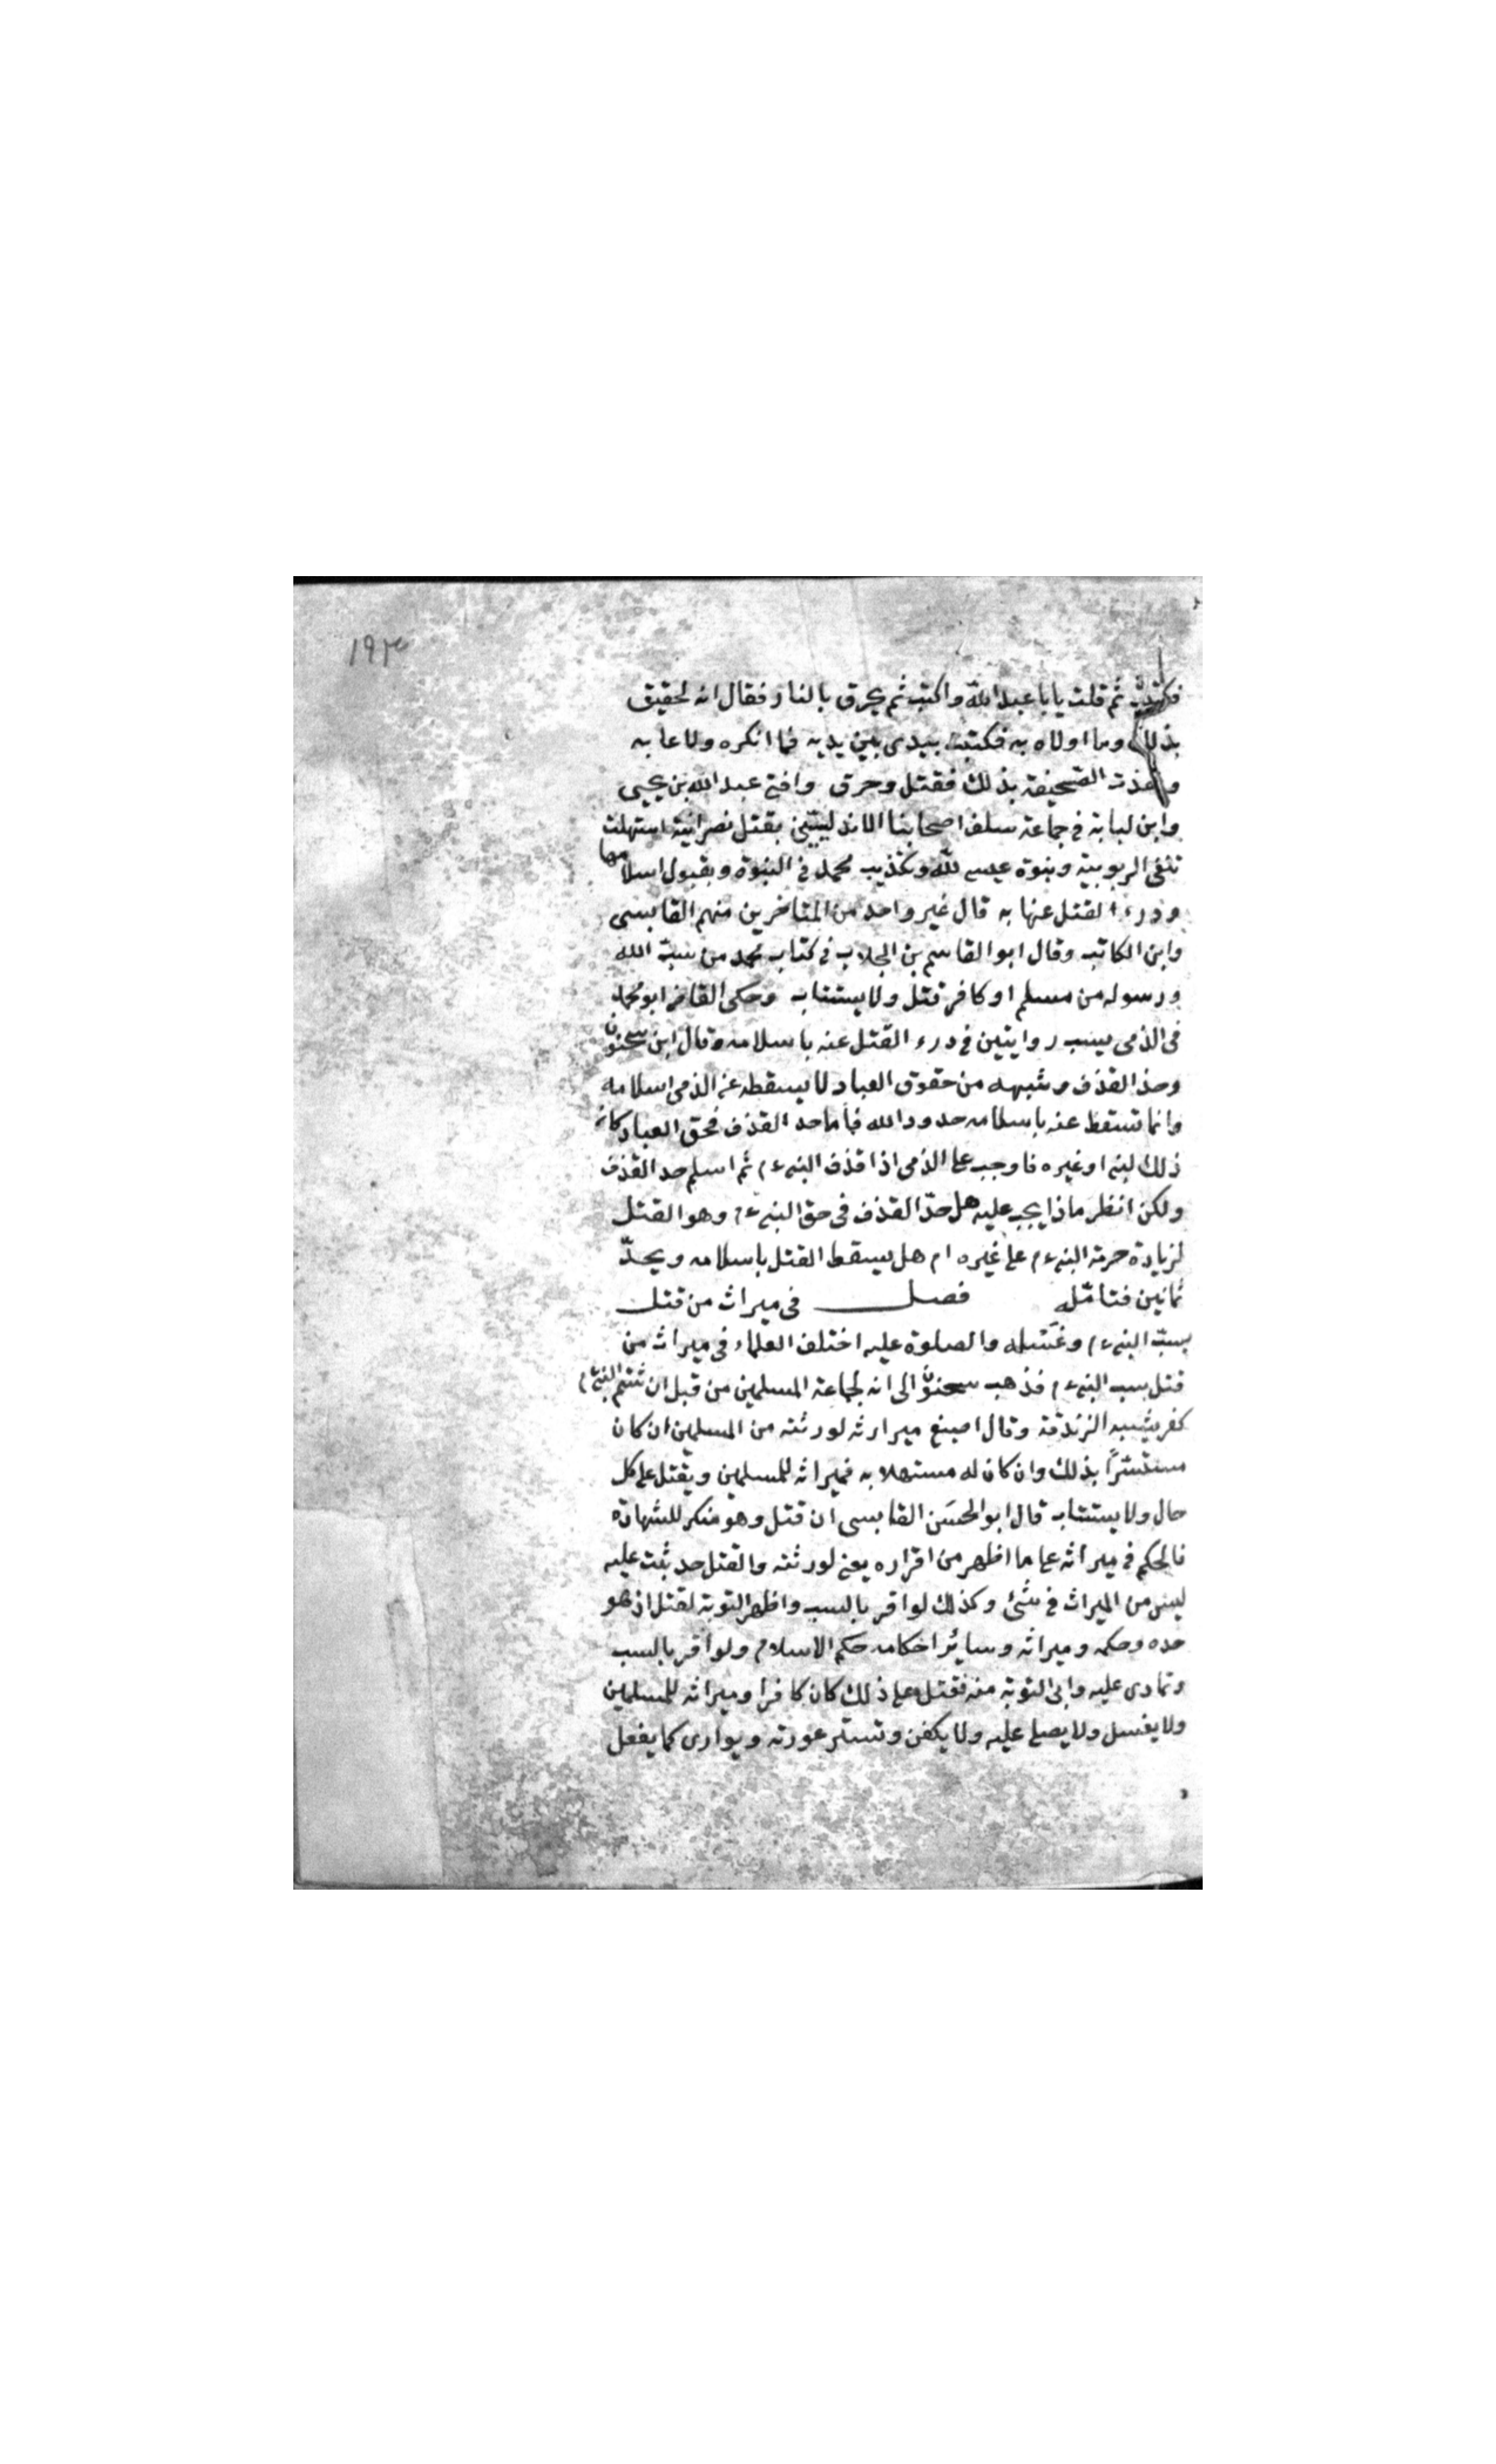 ١٩٣
فكتبت ثم قلت يابا عبد الله واكتب ثم يحرق بالنار فقال انه لحقيق
بذلك وما اولاه به فكتبته بيدى بين يديه فما انكره ولا عابه
ونفذت الصحيفة بذلك فقتل وحرق وافتى عبد الله بن يحيى
وابن لبابة فى جماعة سلف اصحابنا الاندلسيين بقتل نصرانية استهلت
تنفى الربوبية وبنوة عيسى لله وتكذيب محمد فى النبوة وبقبول اسلامها
ودرء القتل عنها به قال غير واحد من المتاخرين منهم القابسى
وابن الكاتب وقال ابو القاسم بن الجلاب فى كتاب محمد من سب الله
ورسوله من مسلم او كافر قتل ولا يستتاب وحكى القاضى ابو محمد
فى الذمى يسب روايتين فى درء القتل عنه باسلامه وقال ابن سحنون
وحد القذف وشبهه من حقوق العباد لا يسقطه عن الذمى اسلامه
وانما تسقط عنه باسلامه حدود الله فاما حد القذف فحق العباد كان
ذلك لنبى او غيره فاوجب على الذمى اذا قذف النبى ءم ثم اسلم حد القذف
ولكن انظر ماذا يجب عليه هل حد القذف فى حق النبى ءم وهو القتل
لزيادة حرمة النبى ءم على غيره ام هل يسقط القتل باسلامه ويحد
ثمانين فتامله فصل فى ميراث من قتل
بسب النبى ءم وغسله والصلوة عليه اختلف العلماء فى ميراث من
قتل بسب النبى ءم فذهب سحنون الى انه لجماعة المسلمين من قبل ان شتم النبى ءم
كفر يشبه الزندقة وقال اصبغ ميراثه لورثته من المسلمين ان كان
مستسرا بذلك وان كان له مستهلا به فميراثه للمسلمين ويقتل على كل
حال ولا يستتاب قال ابو الحسن القابسى ان قتل وهو منكر للشهادة
فالحكم فى ميراثه على ما اظهر من اقراره يعنى لورثته والقتل حد ثبت عليه
ليس من الميراث فى شئ وكذلك لو اقر بالسب واظهر التوبة لقتل اذ هو
حده وحكمه وميراثه وسائر احكامه حكم الاسلام ولو اقر بالسب
وتمادى عليه وابى التوبة منه فقتل على ذلك كان كافرا وميراثه للمسلمين
ولا يغسل ولا يصلى عليه ولا يكفن وتستر عورته ويوارى كما يفعل